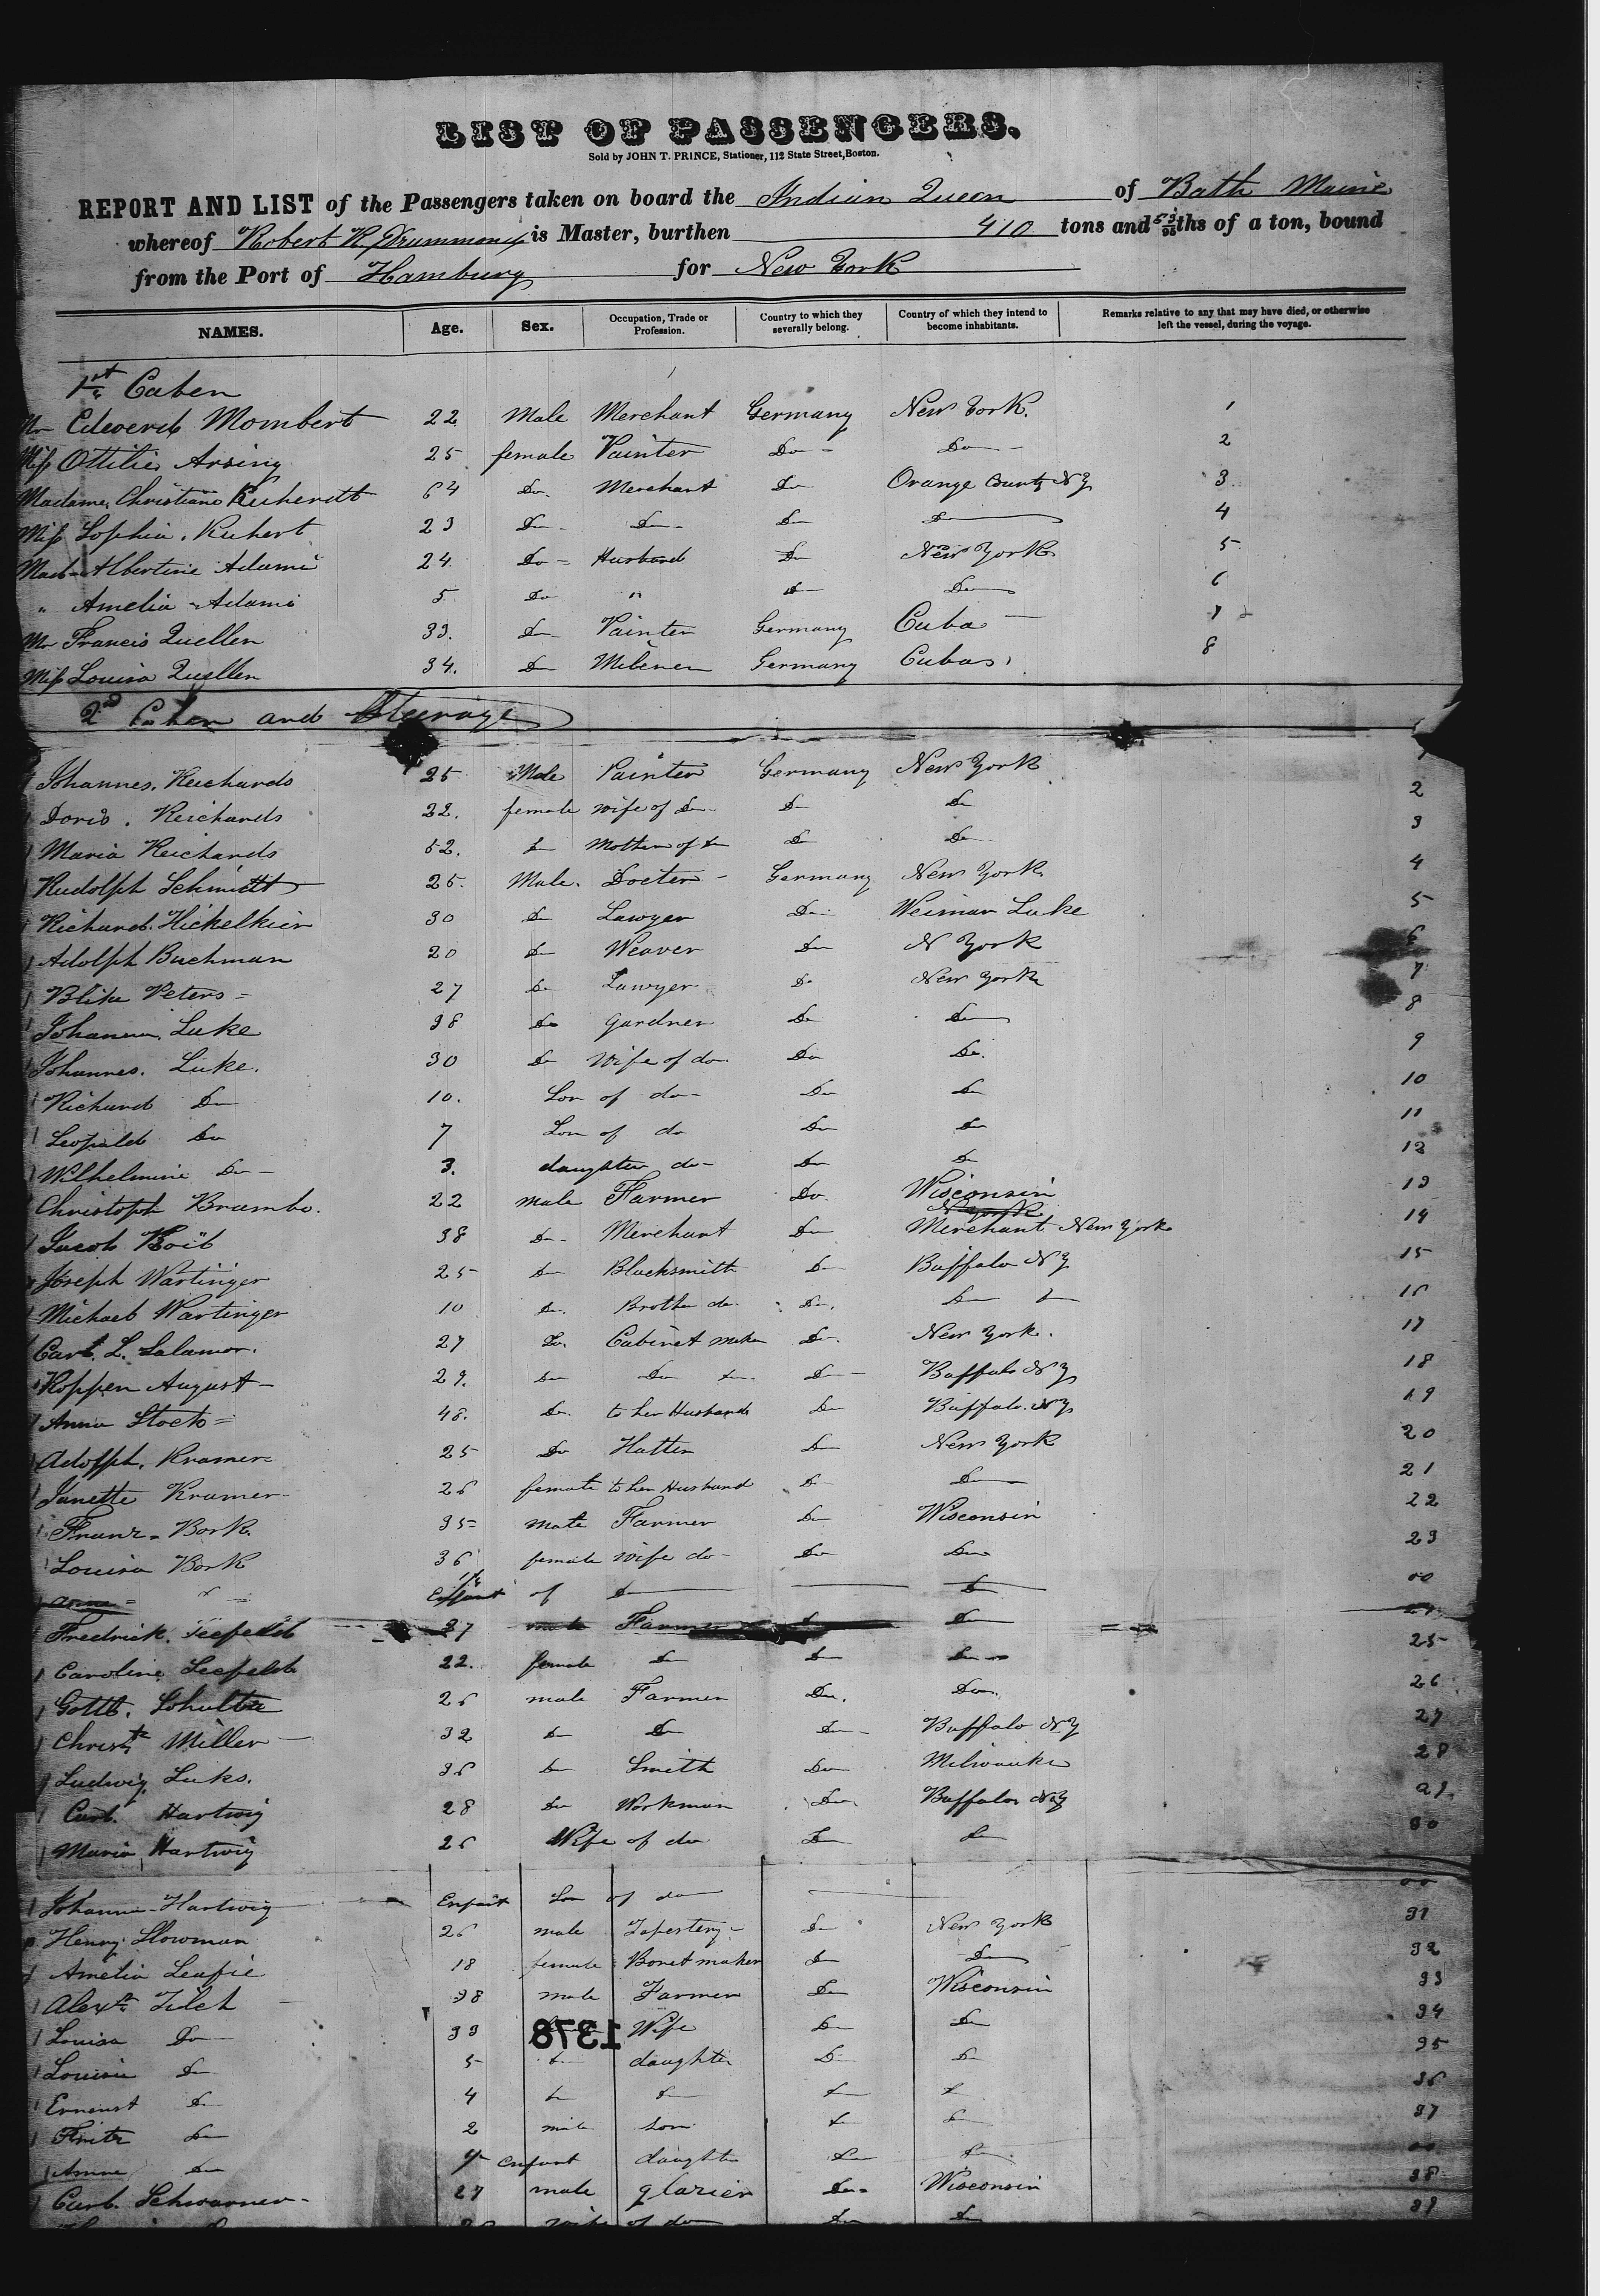 LIST OF PASSENGERS.
Sold by JOHN T. PRINCE, Stationer, 112 State Street, Boston.
REPORT AND LIST of the Passengers taken on board the Indian Queen of Bath Maine
whereof Robert R Drummond is Master, burthen 410 tons and 53/95ths of a ton, bound
from the Port of Hamburg for New York
NAMES. Age. Sex. Occupation, Trade or Profession. Country to which they severally belong. Country of which they intend to become inhabitants. Remarks relative to any that may have died, or otherwise left the vessel, during the voyage.
1st Caben
Mr Edword Mombert 22 Male Merchant Germany New York. 1
Miss Ottilie Arsing 25 female Painter Do Do 2
Madame Christiane 64 Do. Merchant Do Orange County NY 3
Miss Sophia. Ruhert 23 Do Do Do Do 4
Mad Albertine Adami 24 Do Husband Do New York 5
" Amelia Adami 5 Do " Do Do 6
Mr Francis Quellen 33. Do Painter Germany Cuba 7
Miss Louisa Quellen 34. Do Milener Germany Cuba 8
2nd Caben and Steerage
Johannes. Reichards 25 Male Painter Germany New York 1
Doris. Reichards 22. female wife of Do Do Do 2
Maria Reichards 52. Do Mother of Do Do Do 3
Rudolph Schmidt 25. Male. Docter Germany New York 4
Richard. Hickelkier 30 Do Lawyer Do Weimar Lake 5
Adolph Buchman 20 Do Weaver Do N York 6
Peters 27 Do Lawyer Do New York 7
Johanna Luke 38 Do Gardner Do Do 8
Johannes. Luke. 30 Do Wife of do. Do Do. 9
Richard Do 10. Son of do Do Do 10
Leopold Do 7 Son of do Do Do 11
Wilhelmine Do 3. daughter do Do Do 12
Christoph Brumbo. 22 male Farmer Do. Wisconsin 13
N York
Jacob 38 Do Merchant Do Merchant New York 14
Joseph Wartinger 25 Do Blacksmith Do Buffalo NY 15
Michael Wartinger 10 Do. Brother do. Do. Do Do 16
Carl. L. Salamon. 27 Do. Cabinet maker Do. New York. 17
Koppen August 29. Do Do Do Do Buffalo NY 18
Anna Stock 48. Do. to her Husband Do Buffalo. NY 19
Adolph. Kramer 25 Do Hatter Do New York 20
Janette Kramer 26 female to her Husband Do Do 21
Franz Bork. 35 male Farmer Do Wisconsin 22
Louisa Bork 36 female wife do Do Do 23
Anna Enfant of Do Do 00
Fredrick. Seefeldt 37 male Farmer Do Do 24
Caroline Seefeldt 22. female Do Do Do 25
Gottl. Schultze 26 male Farmer Do. Do. 26
Christn Miller 32 Do Do Do Buffalo NY 27
Ludwig Luks. 36 Do Smith Do Milwauke 28
Carl. Hartwig 28 Do Workman Do. Buffalo NY 29
Maria Hartwig 26 Wife of do Do Do 30
Johann Hartwig Enfant Son of do 00
Henry Slowman 26 male Tapestery Do New York 31
Amelia Leafie 18 female Bonet maker Do Do 32
Alexdr Tilch 38 male Farmer Do Wisconsin 33
Louisa Do 33 1378 Wife Do Do 34
Louisa Do 5 Do daughter Do Do 35
Erneust Do 4 Do Do Do Do 36
Fritz Do 2 male son Do Do 37
Anna Do enfant daughter Do Do 00
Carl. Schwarner 27 male glazier Do Wisconsin 38
wife of do Do Do 39